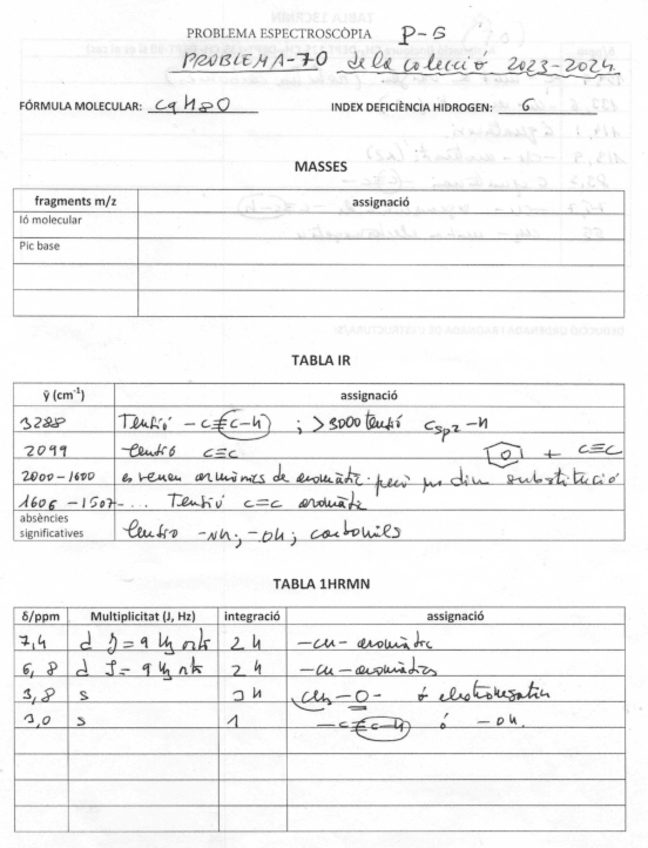 PROBLEMA ESPECTROSCÒPIA P-5
PROBLEMA-70 de la colecció 2023-2024
FÓRMULA MOLECULAR: C9H8O INDEX DEFICIÈNCIA HIDROGEN: 6
MASSES
fragments m/z assignació
Ió molecular
Pic base
TABLA IR
ṽ (cm-1) assignació
3288 Tensió -C≡C-H ; >3000 tensió Csp2-H
2099 tensió C≡C + C≡C
2000-1600 es veuen armònics de aromàtic però no diu substitució
1606-1507-... Tensió C=C aromàtic
absències
significatives tensió -NH; -OH; carbonils
TABLA 1HRMN
δ/ppm Multiplicitat (J, Hz) integració assignació
7,4 d J=9 Hz orto 2H -CH- aromàtic
6,8 d J=9 Hz orto 2H -CH- aromàtics
3,8 s 3H CH3-O- ó electronegatiu
3,0 s 1 -C≡C-H ó -OH.